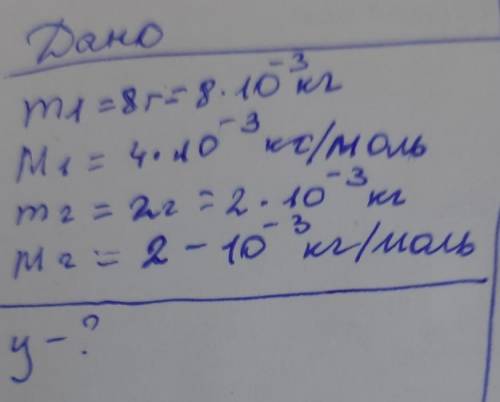 Дано
m1 = 8г = 8 · 10⁻³ кг
M1 = 4 · 10⁻³ кг/моль
m2 = 2г = 2 · 10⁻³ кг
M2 = 2 - 10⁻³ кг/моль
y - ?